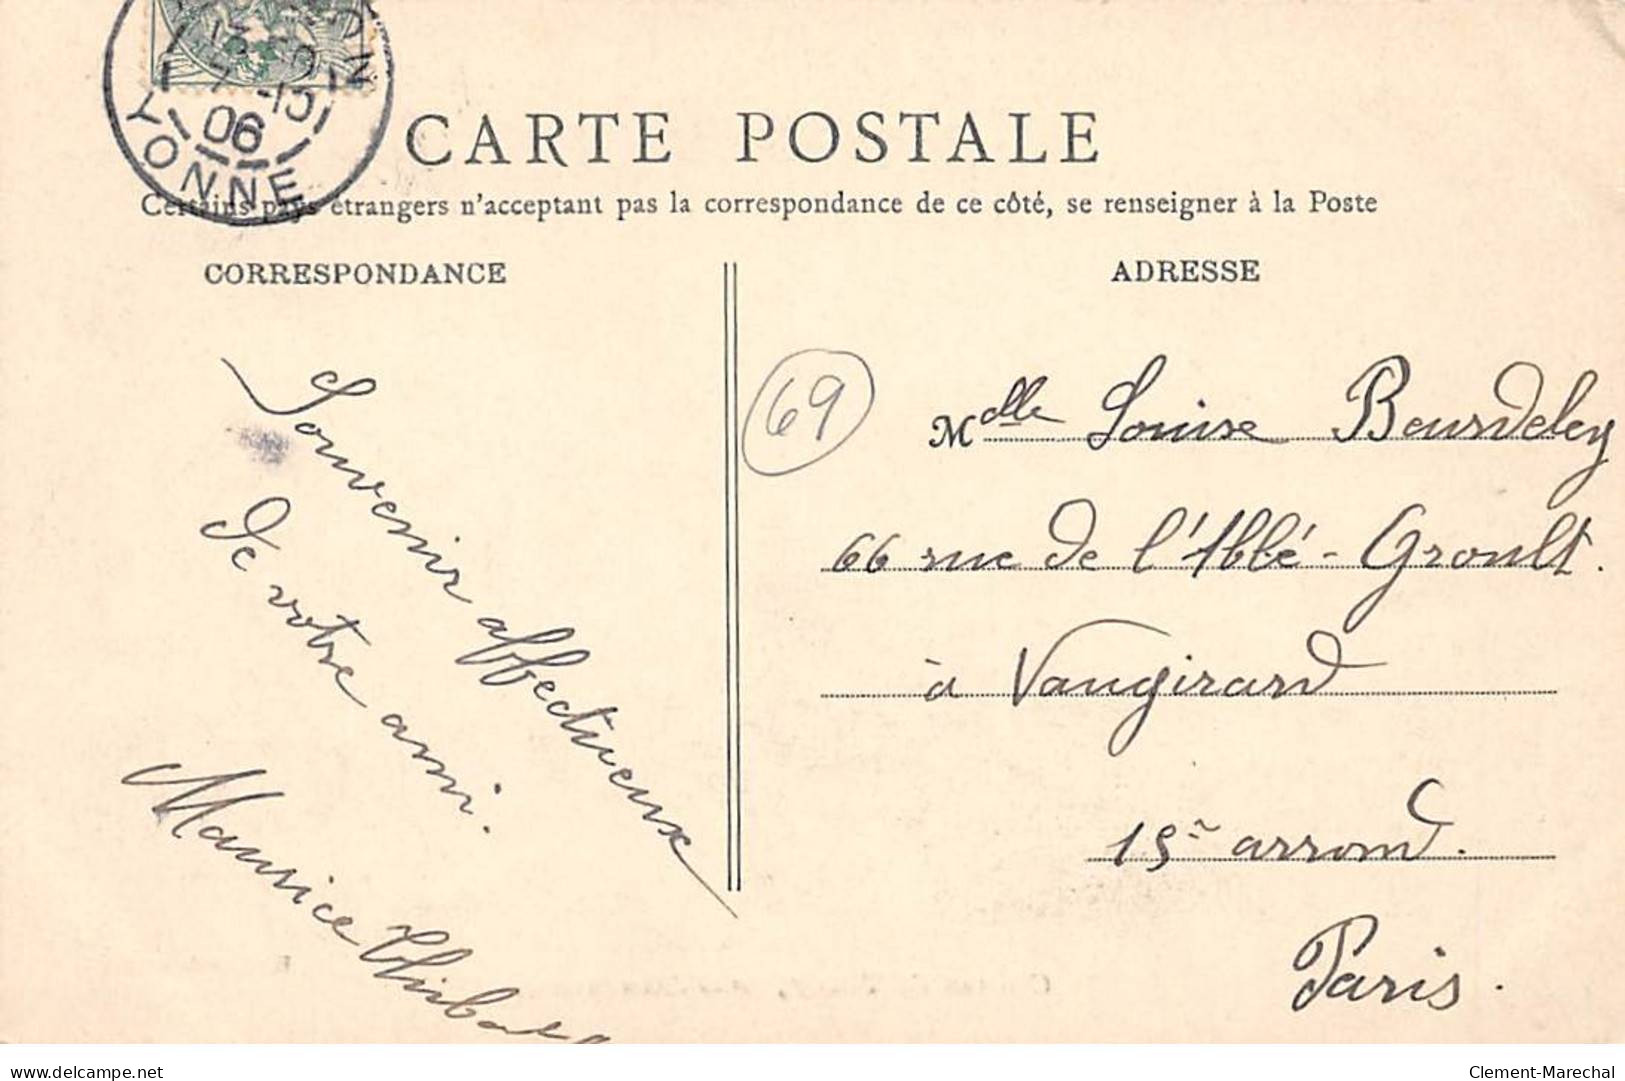 YONNE
06
CARTE POSTALE
Certains pays étrangers n'acceptant pas la correspondance de ce côté, se renseigner à la Poste
CORRESPONDANCE
Souvenir affectueux
de votre ami.
Maurice
ADRESSE
69
Mdlle Louise Bourdeley
66 rue de l'Abbé-Groult.
à Vaugirard
15e arrond.
Paris.
delcampe.net
Clement-Marechal